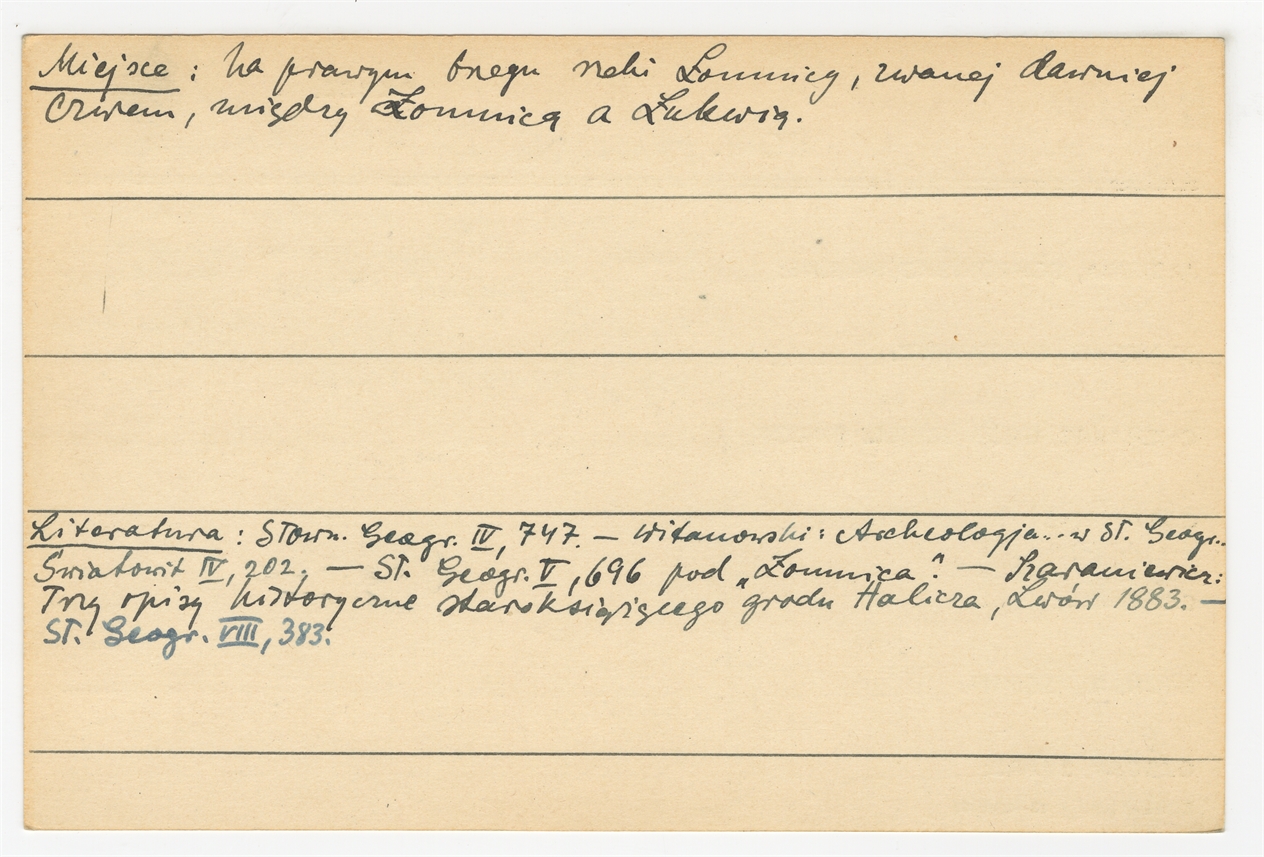 Miejsce : na prawym brzegu rzeki Łomnicy, zwanej dawniej
Czwem, między Łomnicą a Łukwią.
Literatura : Słown. Geogr. IV, 747. — Witanowski : Archeologja... w Sł. Geogr..
Światowit IV, 202. — Sł. Geogr. V, 696 pod „Łomnica". — Szaraniewicz:
Trzy opisy historyczne staroksiążęcego grodu Halicza, Lwów 1883. —
Sł. Geogr. VIII, 383.